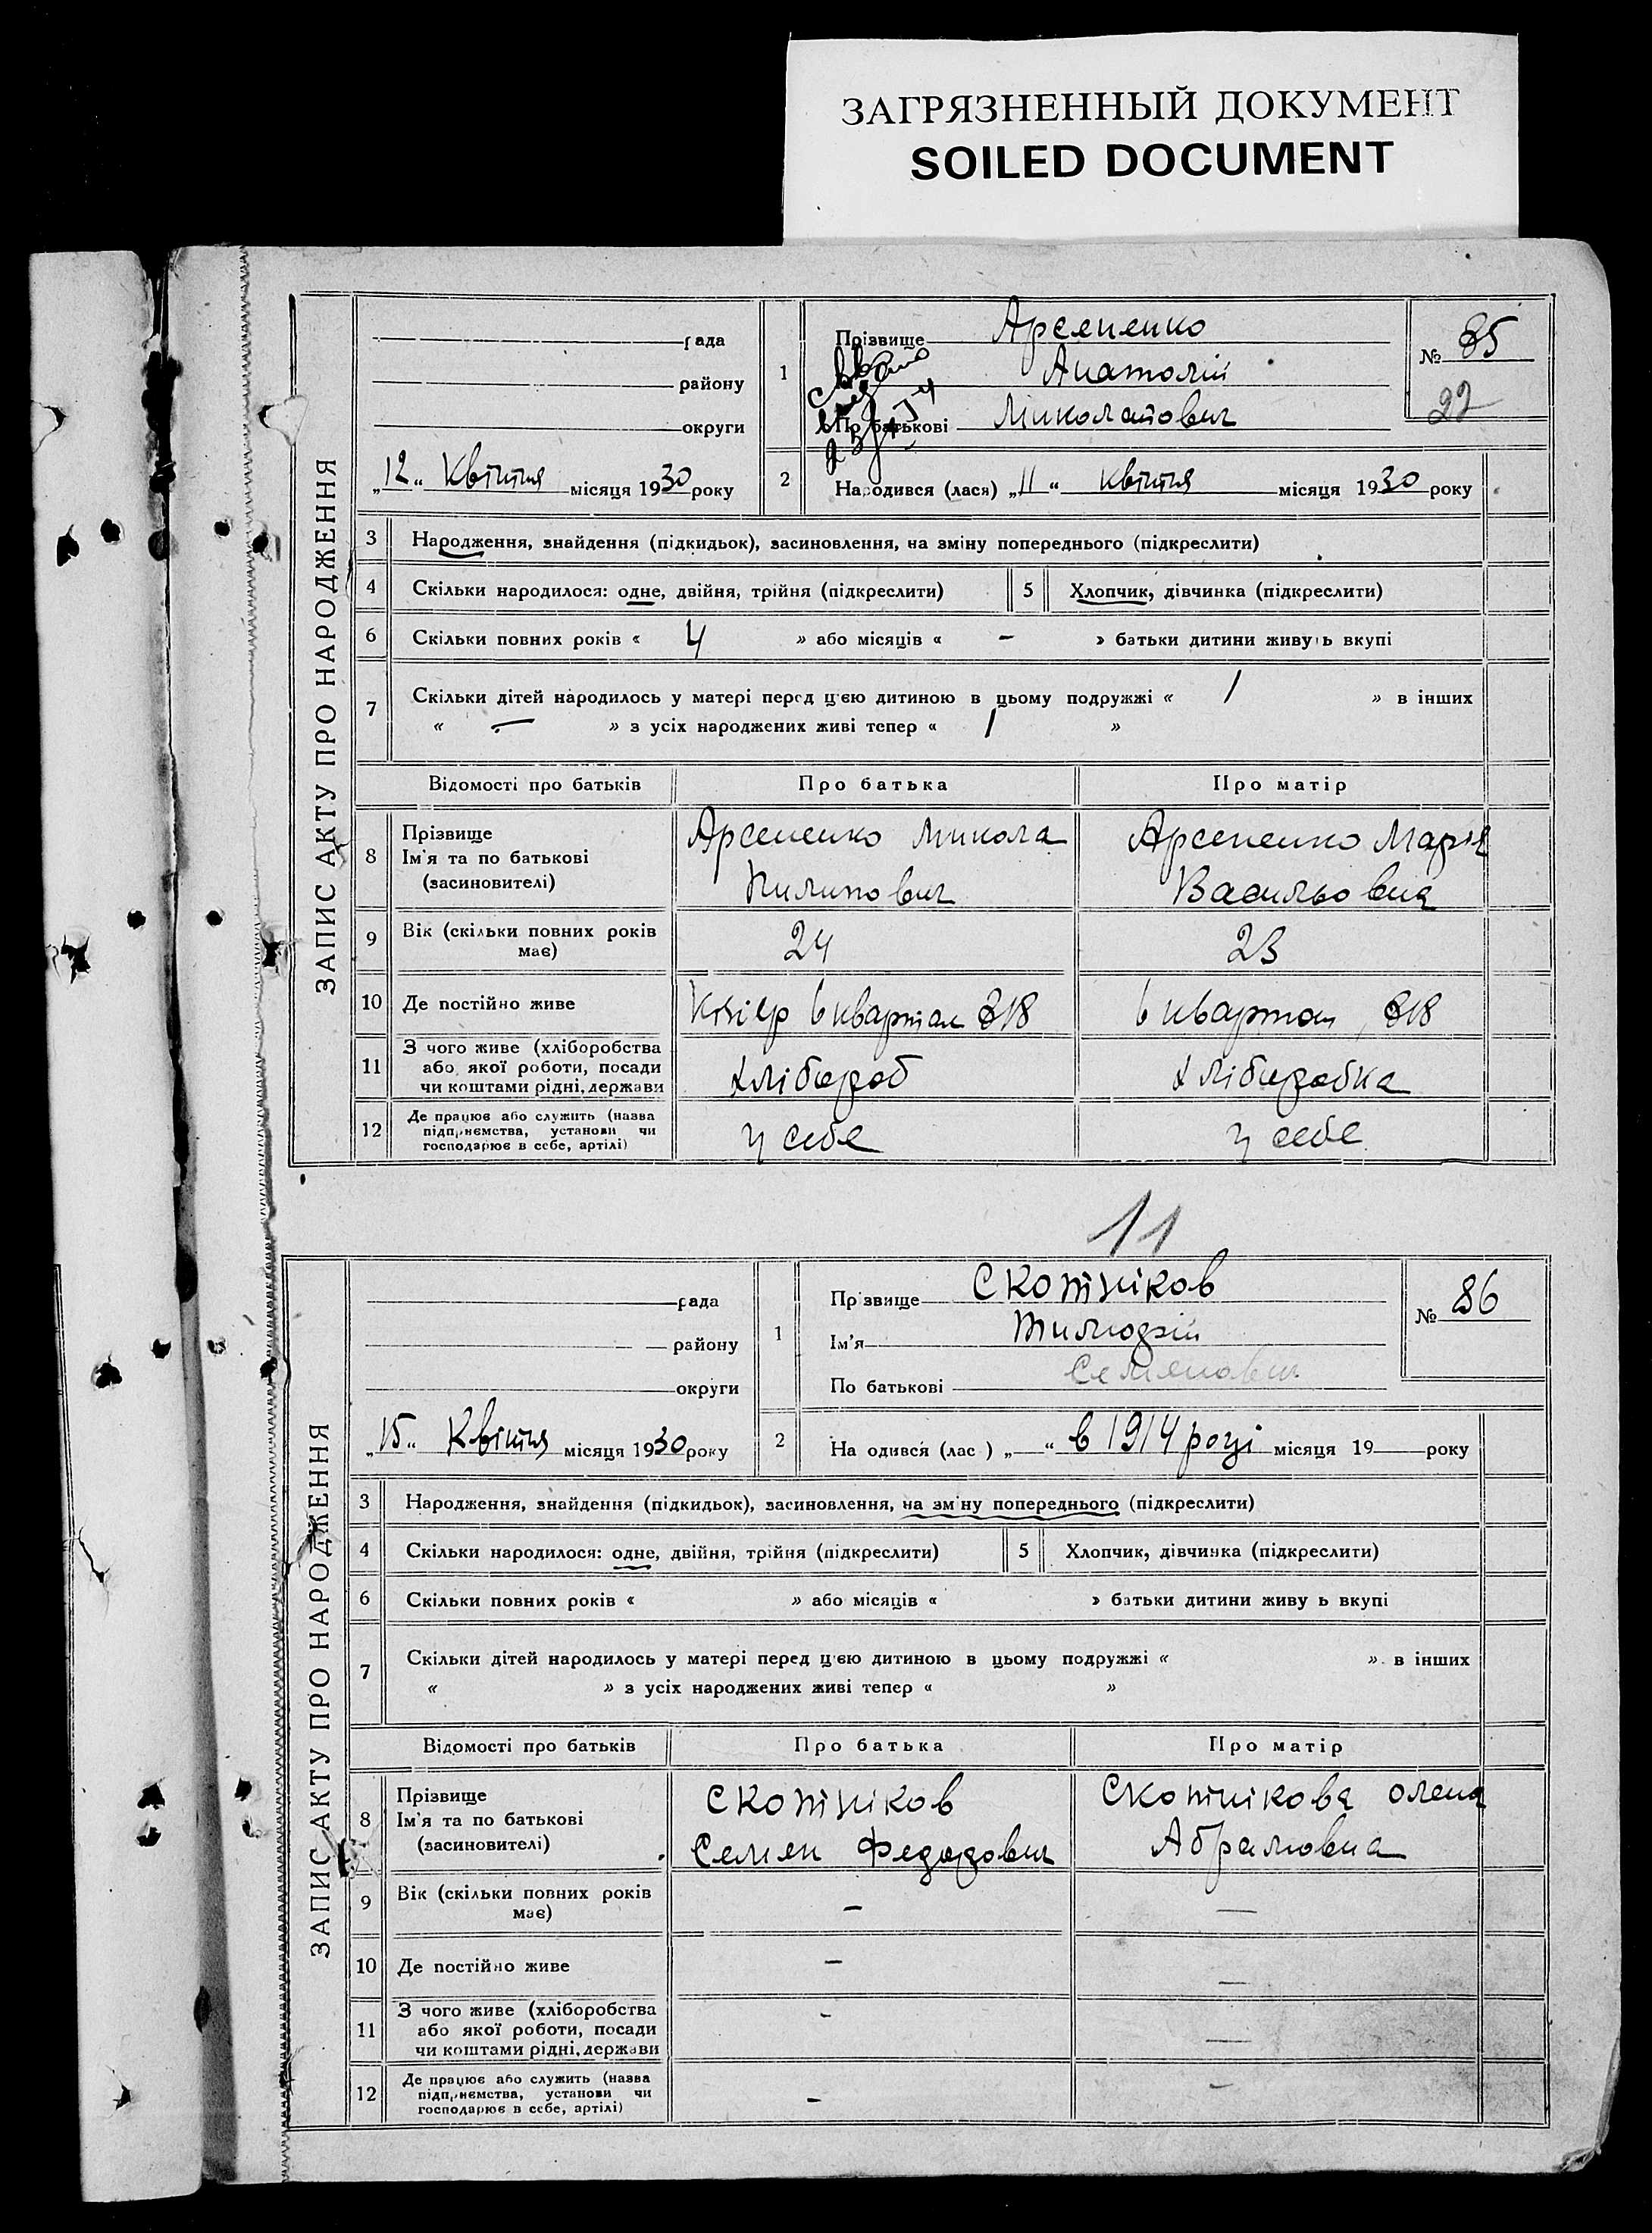 ЗАГРЯЗНЕННЫЙ ДОКУМЕНТ
SOILED DOCUMENT
ЗАПИС АКТУ ПРО НАРОДЖЕННЯ
рада
району
округи
„12“ Квітня місяця 1930 року
1
Прізвище Арсененко
Анатолій
По батькові Миколайович
№ 85
22
2
Народився (лася) „11“ квітня місяця 1930 року
3 Народження, знайдення (підкидьок), засиновлення, на зміну попереднього (підкреслити)
4 Скільки народилося: одне, двійня, трійня (підкреслити) 5 Хлопчик, дівчинка (підкреслити)
6 Скільки повних років « 4 » або місяців « – » батьки дитини живуь вкупі
7 Скільки дітей народилось у матері перед цею дитиною в цьому подружжі « 1 » в інших
« — » з усіх народжених живі тепер « 1 »
Відомості про батьків Про батька Про матір
8 Прізвище Арсененко Микола Арсененко Марія
Ім'я та по батькові
(засиновителі) Пилипович Васильовна
9 Вік (скільки повних років
має) 24 23
10 Де постійно живе 6 квартал 318 6 квартал, 318
11 З чого живе (хліборобства
або якої роботи, посади хлібороб хліборобка
чи коштами рідні, держави
12 Де працює або служить (назва
підприємства, установи чи у себе у себе
господарює в себе, артілі)
11
ЗАПИС АКТУ ПРО НАРОДЖЕННЯ
рада
району
округи
„15“ Квітня місяця 1930 року
1
Прзвище Скотніков
Ім'я Тимофій
По батькові Семенович
№ 86
2
На одився (лас ) „—“ в 1914 році місяця 19— року
3 Народження, знайдення (підкидьок), засиновлення, на зм ну попереднього (підкреслити)
4 Скільки народилося: одне, двійня, трійня (підкреслити) 5 Хлопчик, дівчинка (підкреслити)
6 Скільки повних років « » або місяців « » батьки дитини живу ь вкупі
7 Скільки дітей народилось у матері перед цею дитиною в цьому подружжі « » в інших
« » з усіх народжених живі тепер « »
Відомості про батьків Про батька Про матір
8 Прізвище Скотніков Скотнікова Олена
Ім'я та по батькові
(засиновителі) Семен Федорович Абрамовна
9 Вік (скільки повних років
має) – —
10 Де постійно живе – —
11 З чого живе (хліборобства
або якої роботи, посади - —
чи коштами рідні, держави
12 Де працює або служить (назва
підприємства, установи чи – –
господарює в себе, артілі)